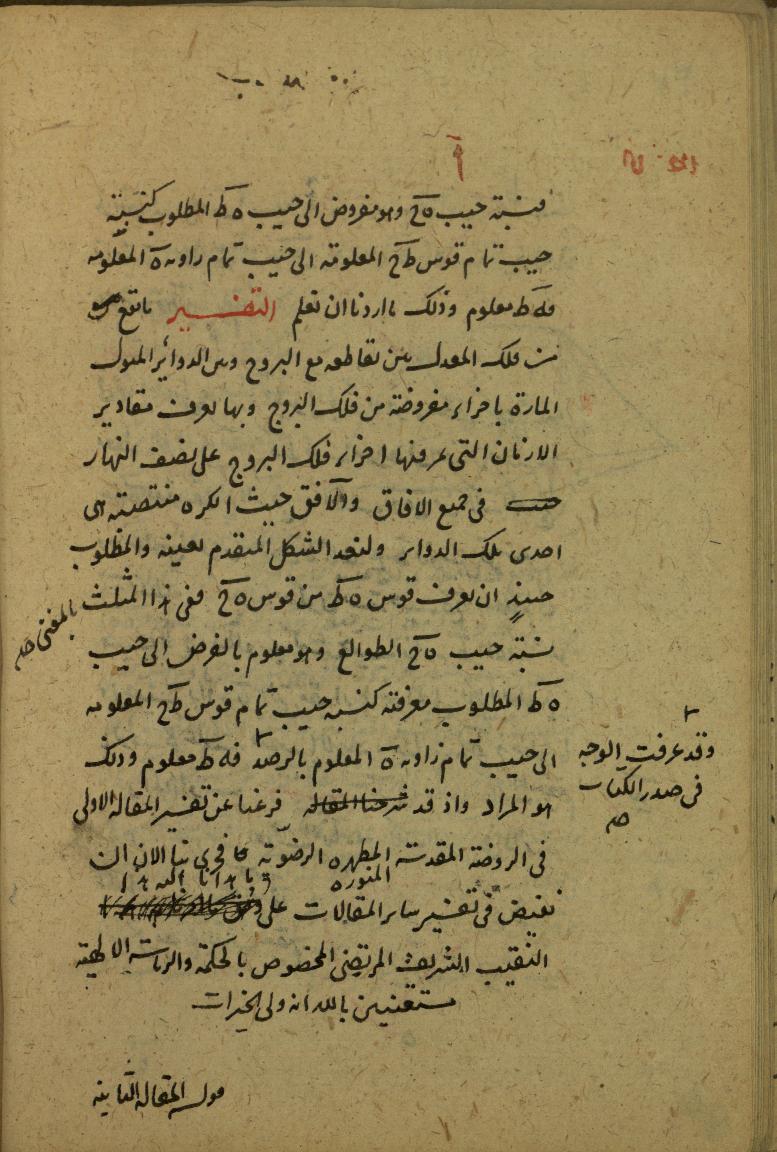 فنسبة جيب ه ح وهو مفروض الى جيب ه ط المطلوب كنسبة
جيب تمام قوس ط ح المعلومة الى جيب تمام زاوية ه المعلومه
فه ط معلوم وذلك ما اردنا ان نعلم التفسير ما تقع
من فلك المعدل بين تقاطعه مع البروج وبين الدوائر الميول
المارة باجزاء مفروضة من فلك البروج وبها نعرف مقادير
الازمان التى تمر فيها اجزاء فلك البروج على نصف النهار
فى جميع الافاق والافق حيث الكره منتصبة هى
احدى تلك الدوائر ولنعد الشكل المتقدم بعينه والمطلوب
حينئذ ان نعرف قوس ه ط من قوس ه ح ففى هذا المثلث بالمغنى
نسبة جيب ه ح الطوالع وهو معلوم بالفرض الى جيب
ه ط المطلوب معرفته كنسبة جيب تمام قوس ط ح المعلومه
الى جيب تمام زاويه ه المعلوم بالرصد فه ط معلوم وذلك
وقد عرفت الوجه
فى صدر الكتاب
هو المراد واذ قد فرغنا عن تفسير المقالة الاولى
فى الروضة المقدسة المطهره الرضوية فحرى بنا الان ان
المنوره
نفيض فى تفسير ساير المقالات على
النقيب الشريف المرتضى المخصوص بالحكمة والرياسة الالهية
مستعينين بالله انه ولى الخيرات
المقالة الثانية